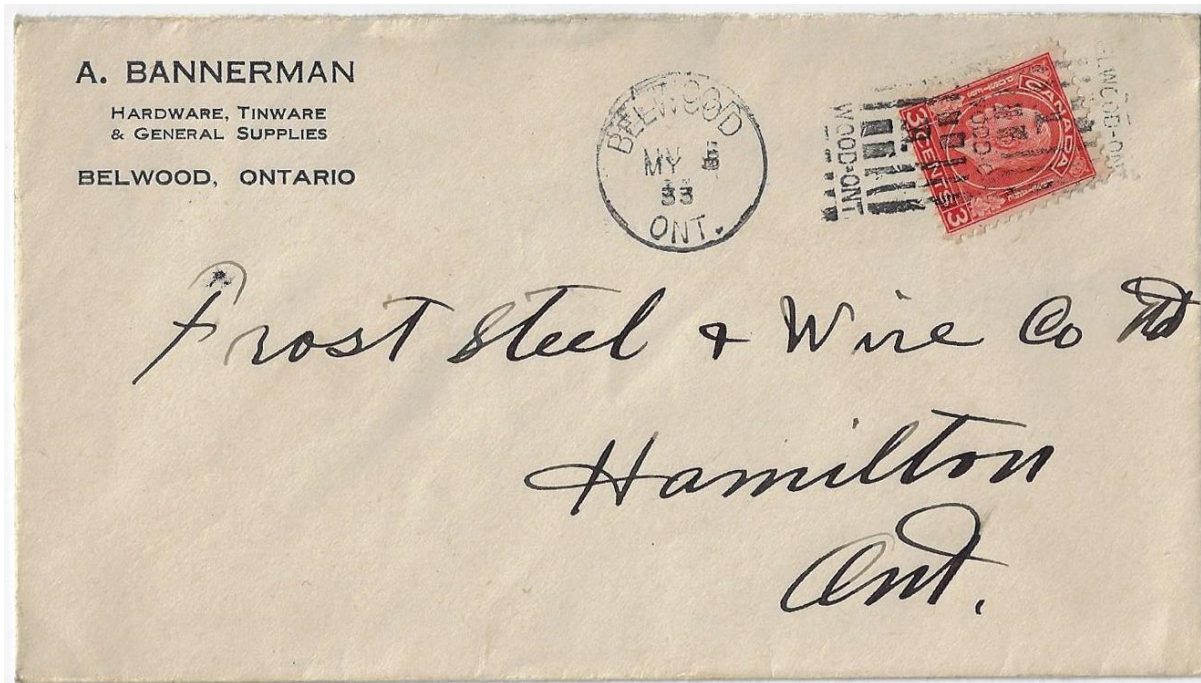 A. BANNERMAN
HARDWARE, TINWARE
& GENERAL SUPPLIES
BELWOOD, ONTARIO
BELWOOD
MY
33
ONT.
WOOD-ONT.
ELWOOD-ONT
CANADA
3 CENTS 3
Frost Steel & Wire Co Ltd
Hamilton
Ont.